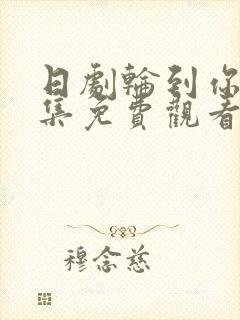 日劇輪到你
集免費觀看
穆念慈